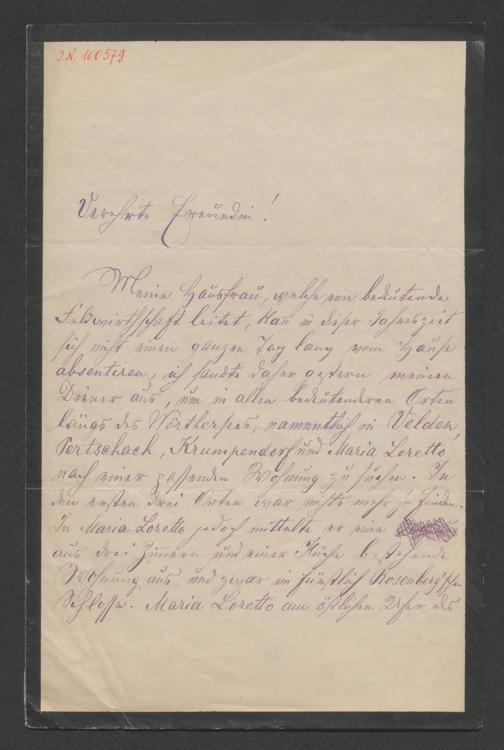 J.N. 100579
Verehrte Freundin!
Meine Hausfrau, welche eine bedeutende
Feldwirthschaft leitet, kan in dieser Jahreszeit
sich nicht einen ganzen Tag lang vom Hause
absentiren, ich sandte daher gestern meinen
Diener aus, um in allen bedeutenderen Orten
längs des Wörthersees, namentlich in Velden,
Pertschach, Krumpendorf und Maria Loretto
nach einer passenden Wohnung zu suchen. In
den ersten drei Orten war nichts mehr zu finden.
In Maria Loretto jedoch mittelte er eine
aus drei Zimmern und einer Küche bestehende
Wohnung aus, und zwar im fürstlich Rosenberg'schen
Schlosse. Maria Loretto am östlichen Ufer des